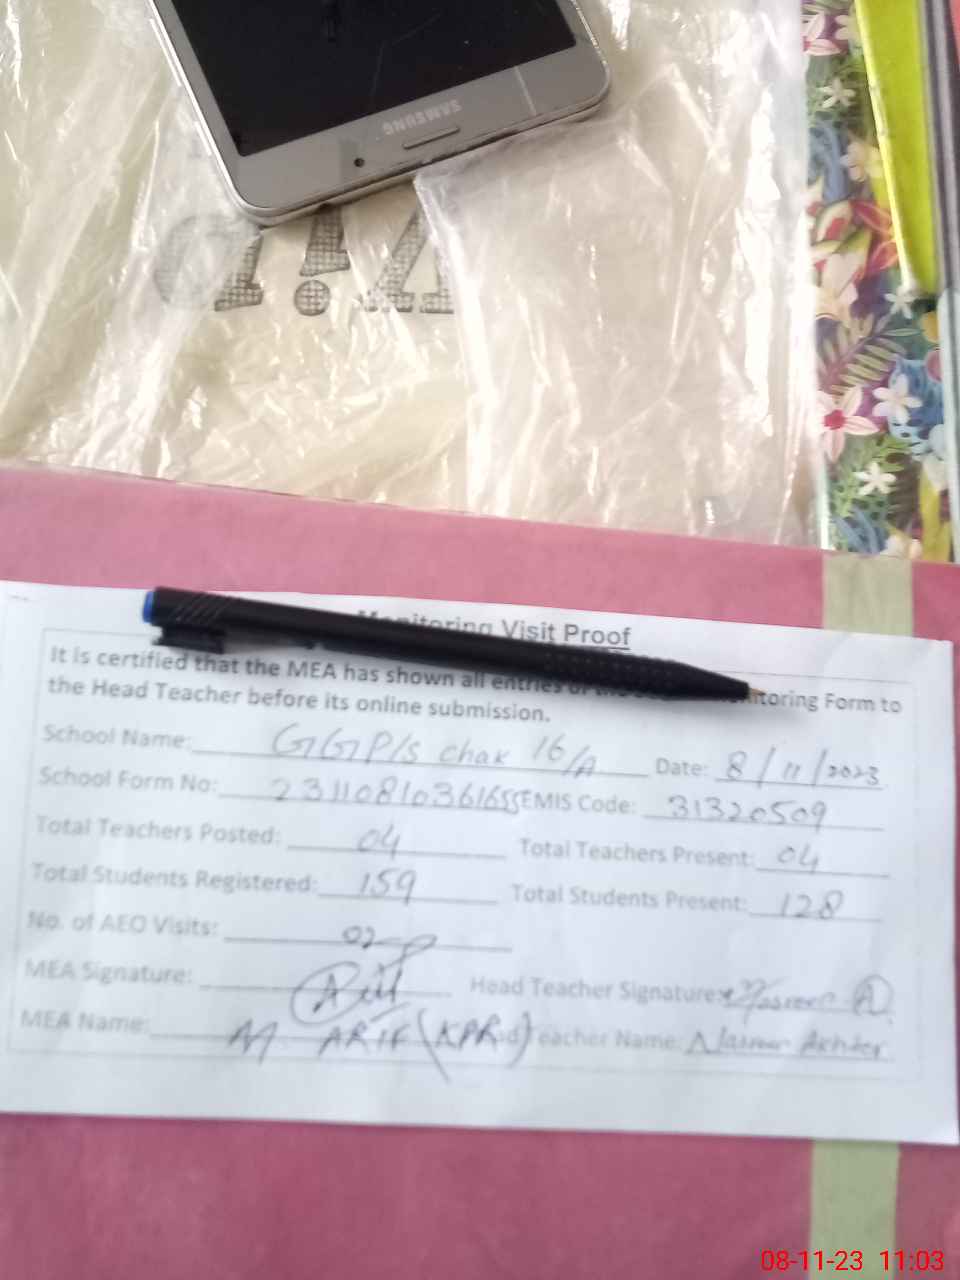 SAMSUNG
Monitoring Visit Proof
It is certified that the MEA has shown all entries of the Monitoring Form to
the Head Teacher before its online submission.
School Name: GGP/s chak 16/A Date: 8/11/2023
School Form No: 23110810361655 EMIS Code: 31320509
Total Teachers Posted: 04 Total Teachers Present: 04
Total Students Registered: 159 Total Students Present: 128
No. of AEO Visits: 02
MEA Signature: Head Teacher Signature:
MEA Name: M ARIF (KPR) Teacher Name: Akhter
08-11-23 11:03